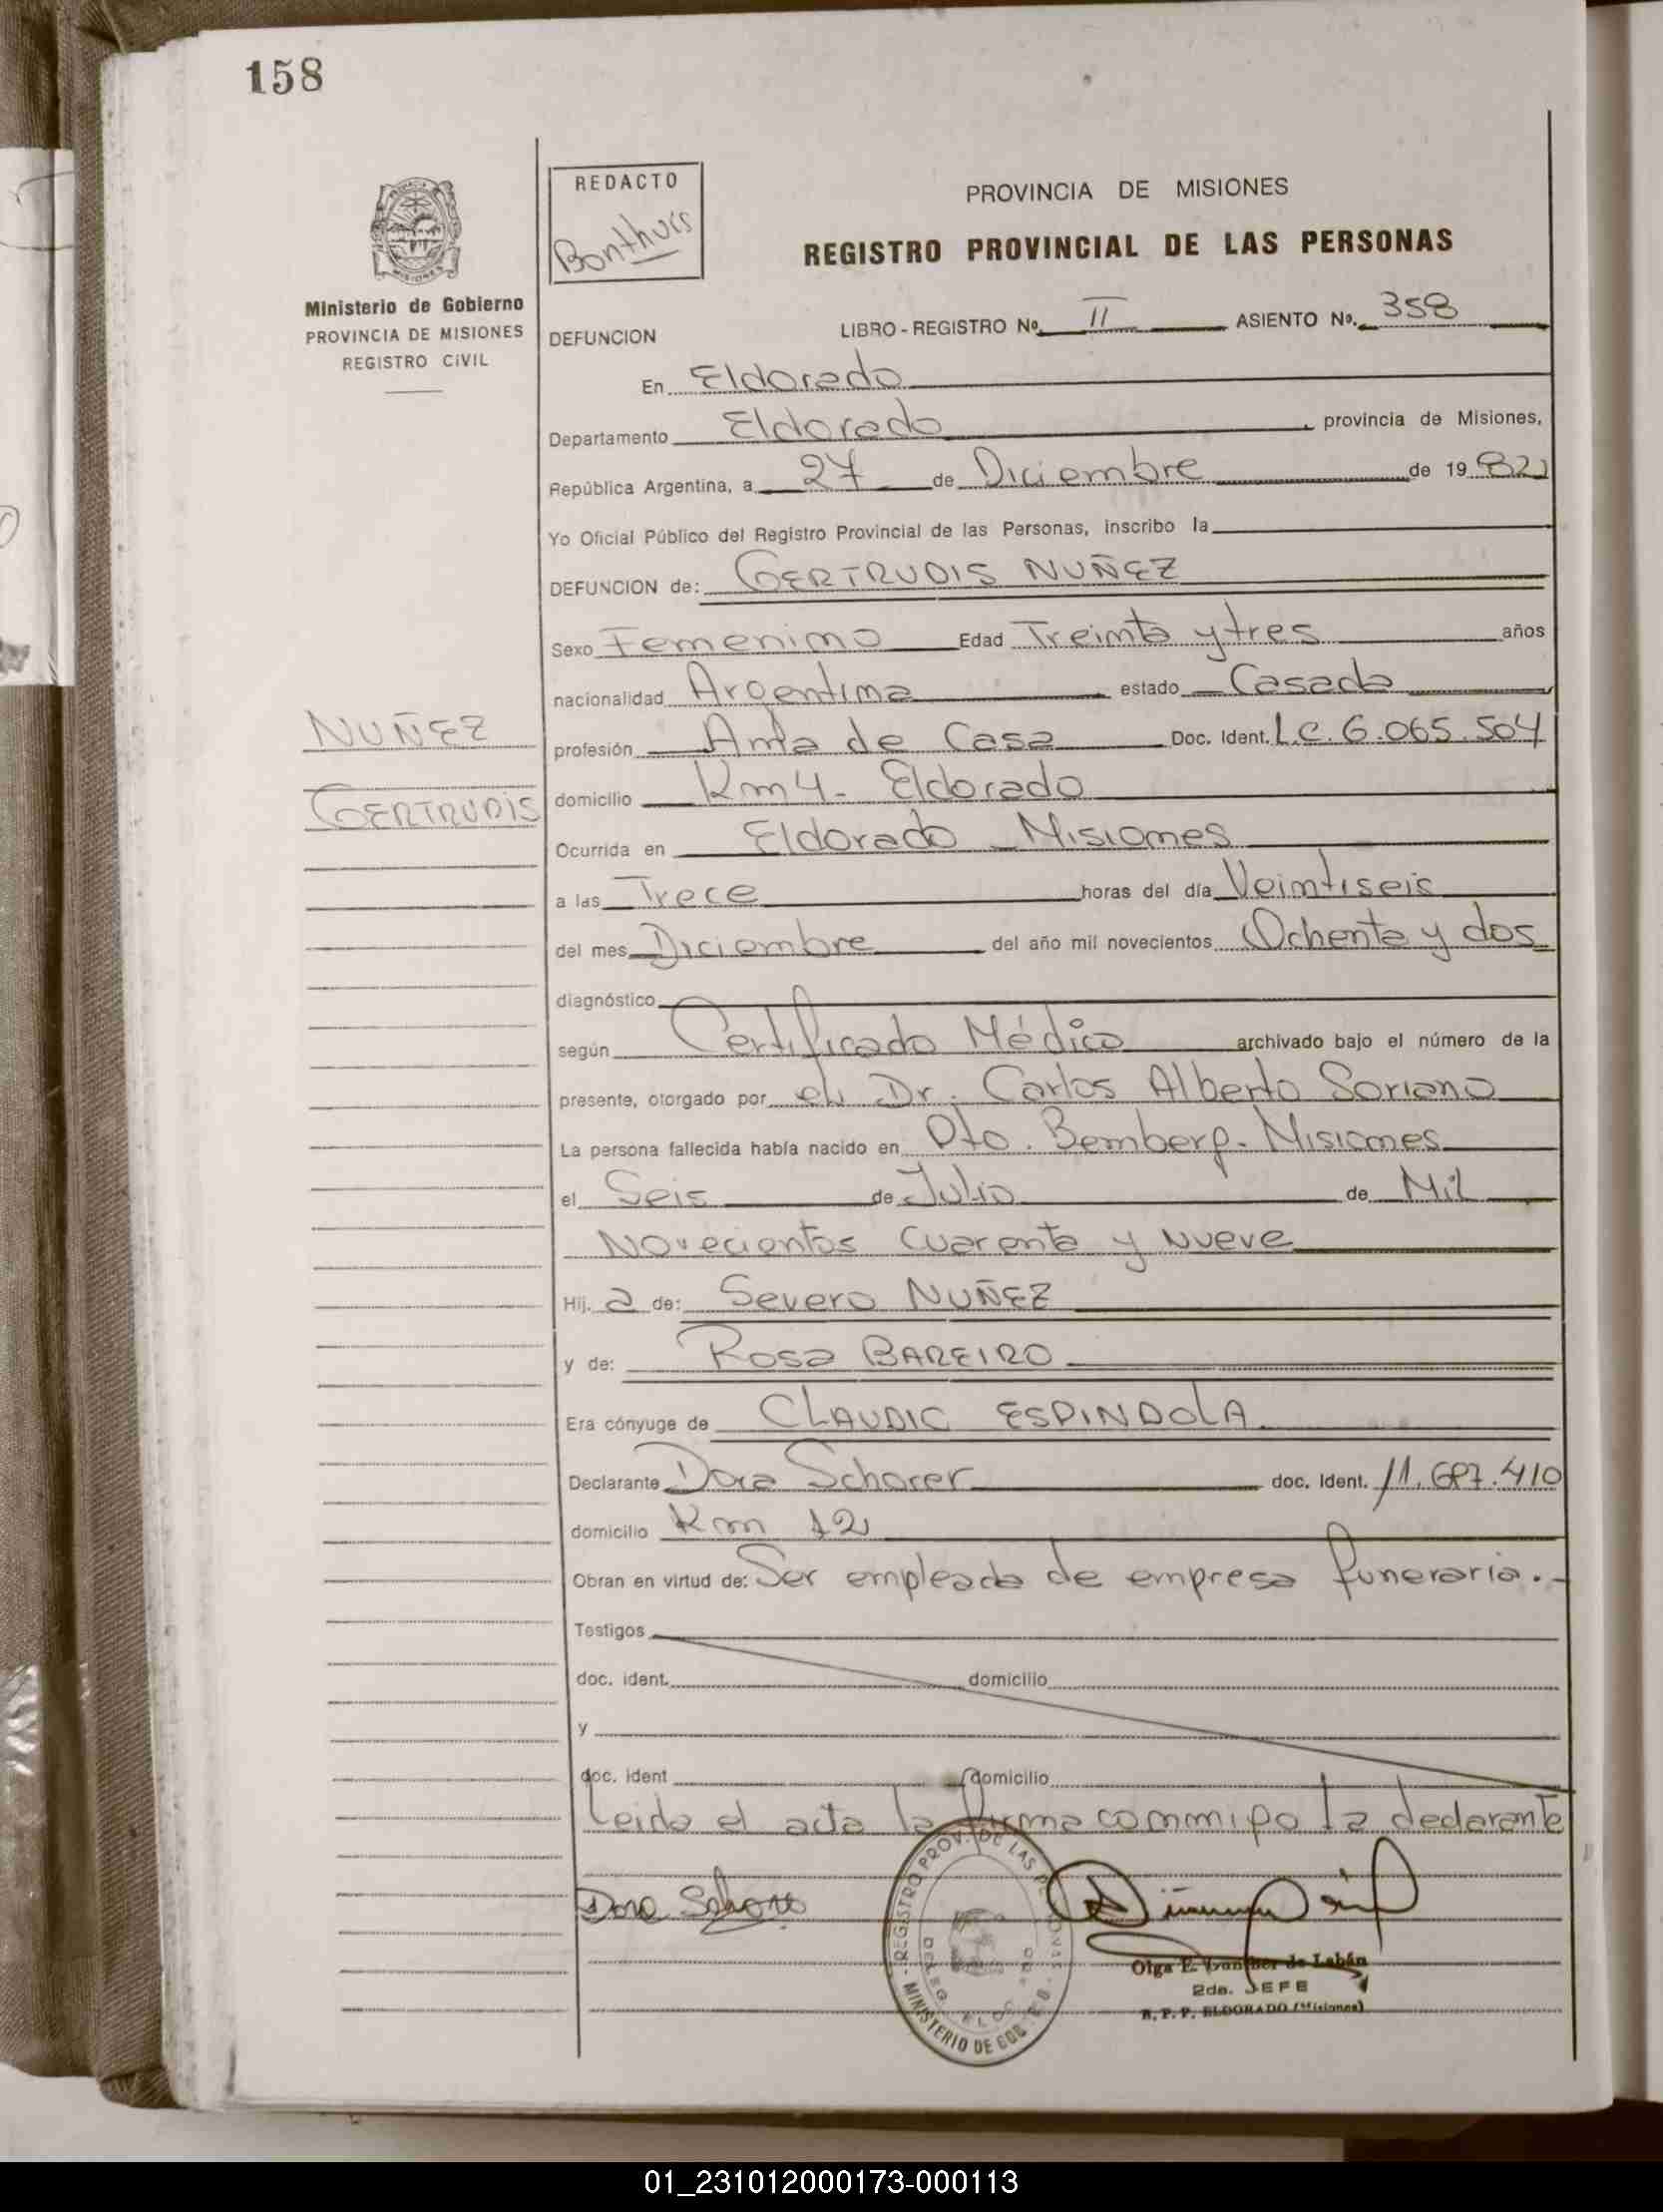 158
REDACTO
Bonthuis
PROVINCIA DE MISIONES
REGISTRO PROVINCIAL DE LAS PERSONAS
Ministerio de Gobierno
PROVINCIA DE MISIONES
REGISTRO CIVIL
DEFUNCION LIBRO - REGISTRO Nº II ASIENTO Nº. 358
En Eldorado
Departamento Eldorado, provincia de Misiones,
República Argentina, a 27 de Diciembre de 1982
Yo Oficial Público del Registro Provincial de las Personas, inscribo la
DEFUNCION de: GERTRUDIS NUÑEZ
Sexo Femenino Edad Treinta y tres años
nacionalidad Argentina estado Casada
NUÑEZ
profesión Ama de Casa Doc. Ident. L.C. 6.065.504
GERTRUDIS
domicilio Km 4 - Eldorado
Ocurrida en Eldorado - Misiones
a las Trece horas del día Veintiseis
del mes Diciembre del año mil novecientos Ochenta y dos
diagnóstico
según Certificado Médico archivado bajo el número de la
presente, otorgado por el Dr. Carlos Alberto Soriano
La persona fallecida había nacido en Pto. Bemberg - Misiones
el Seis de Julio de Mil
Novecientos Cuarenta y Nueve
Hij. a de: Severo NUÑEZ
y de: Rosa BAREIRO
Era cónyuge de CLAUDIO ESPINDOLA
Declarante Dora Schorer doc. Ident. 11.687.410
domicilio Km 12
Obran en virtud de: Ser empleada de empresa funeraria.-
Testigos
doc. ident. domicilio
y
doc. ident domicilio
Leida el acta la firma conmigo la declarante
Dora
REGISTRO PROV. DE LAS
MINISTERIO DE GOB.
Olga E. de Labán
2da. JEFE
R. P. P. ELDORADO (Misiones)
01_231012000173-000113